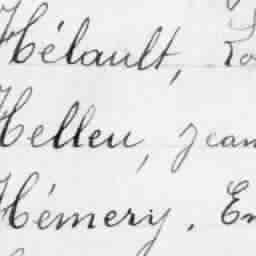 Hélault,
Helleu, Jean
Hémery.